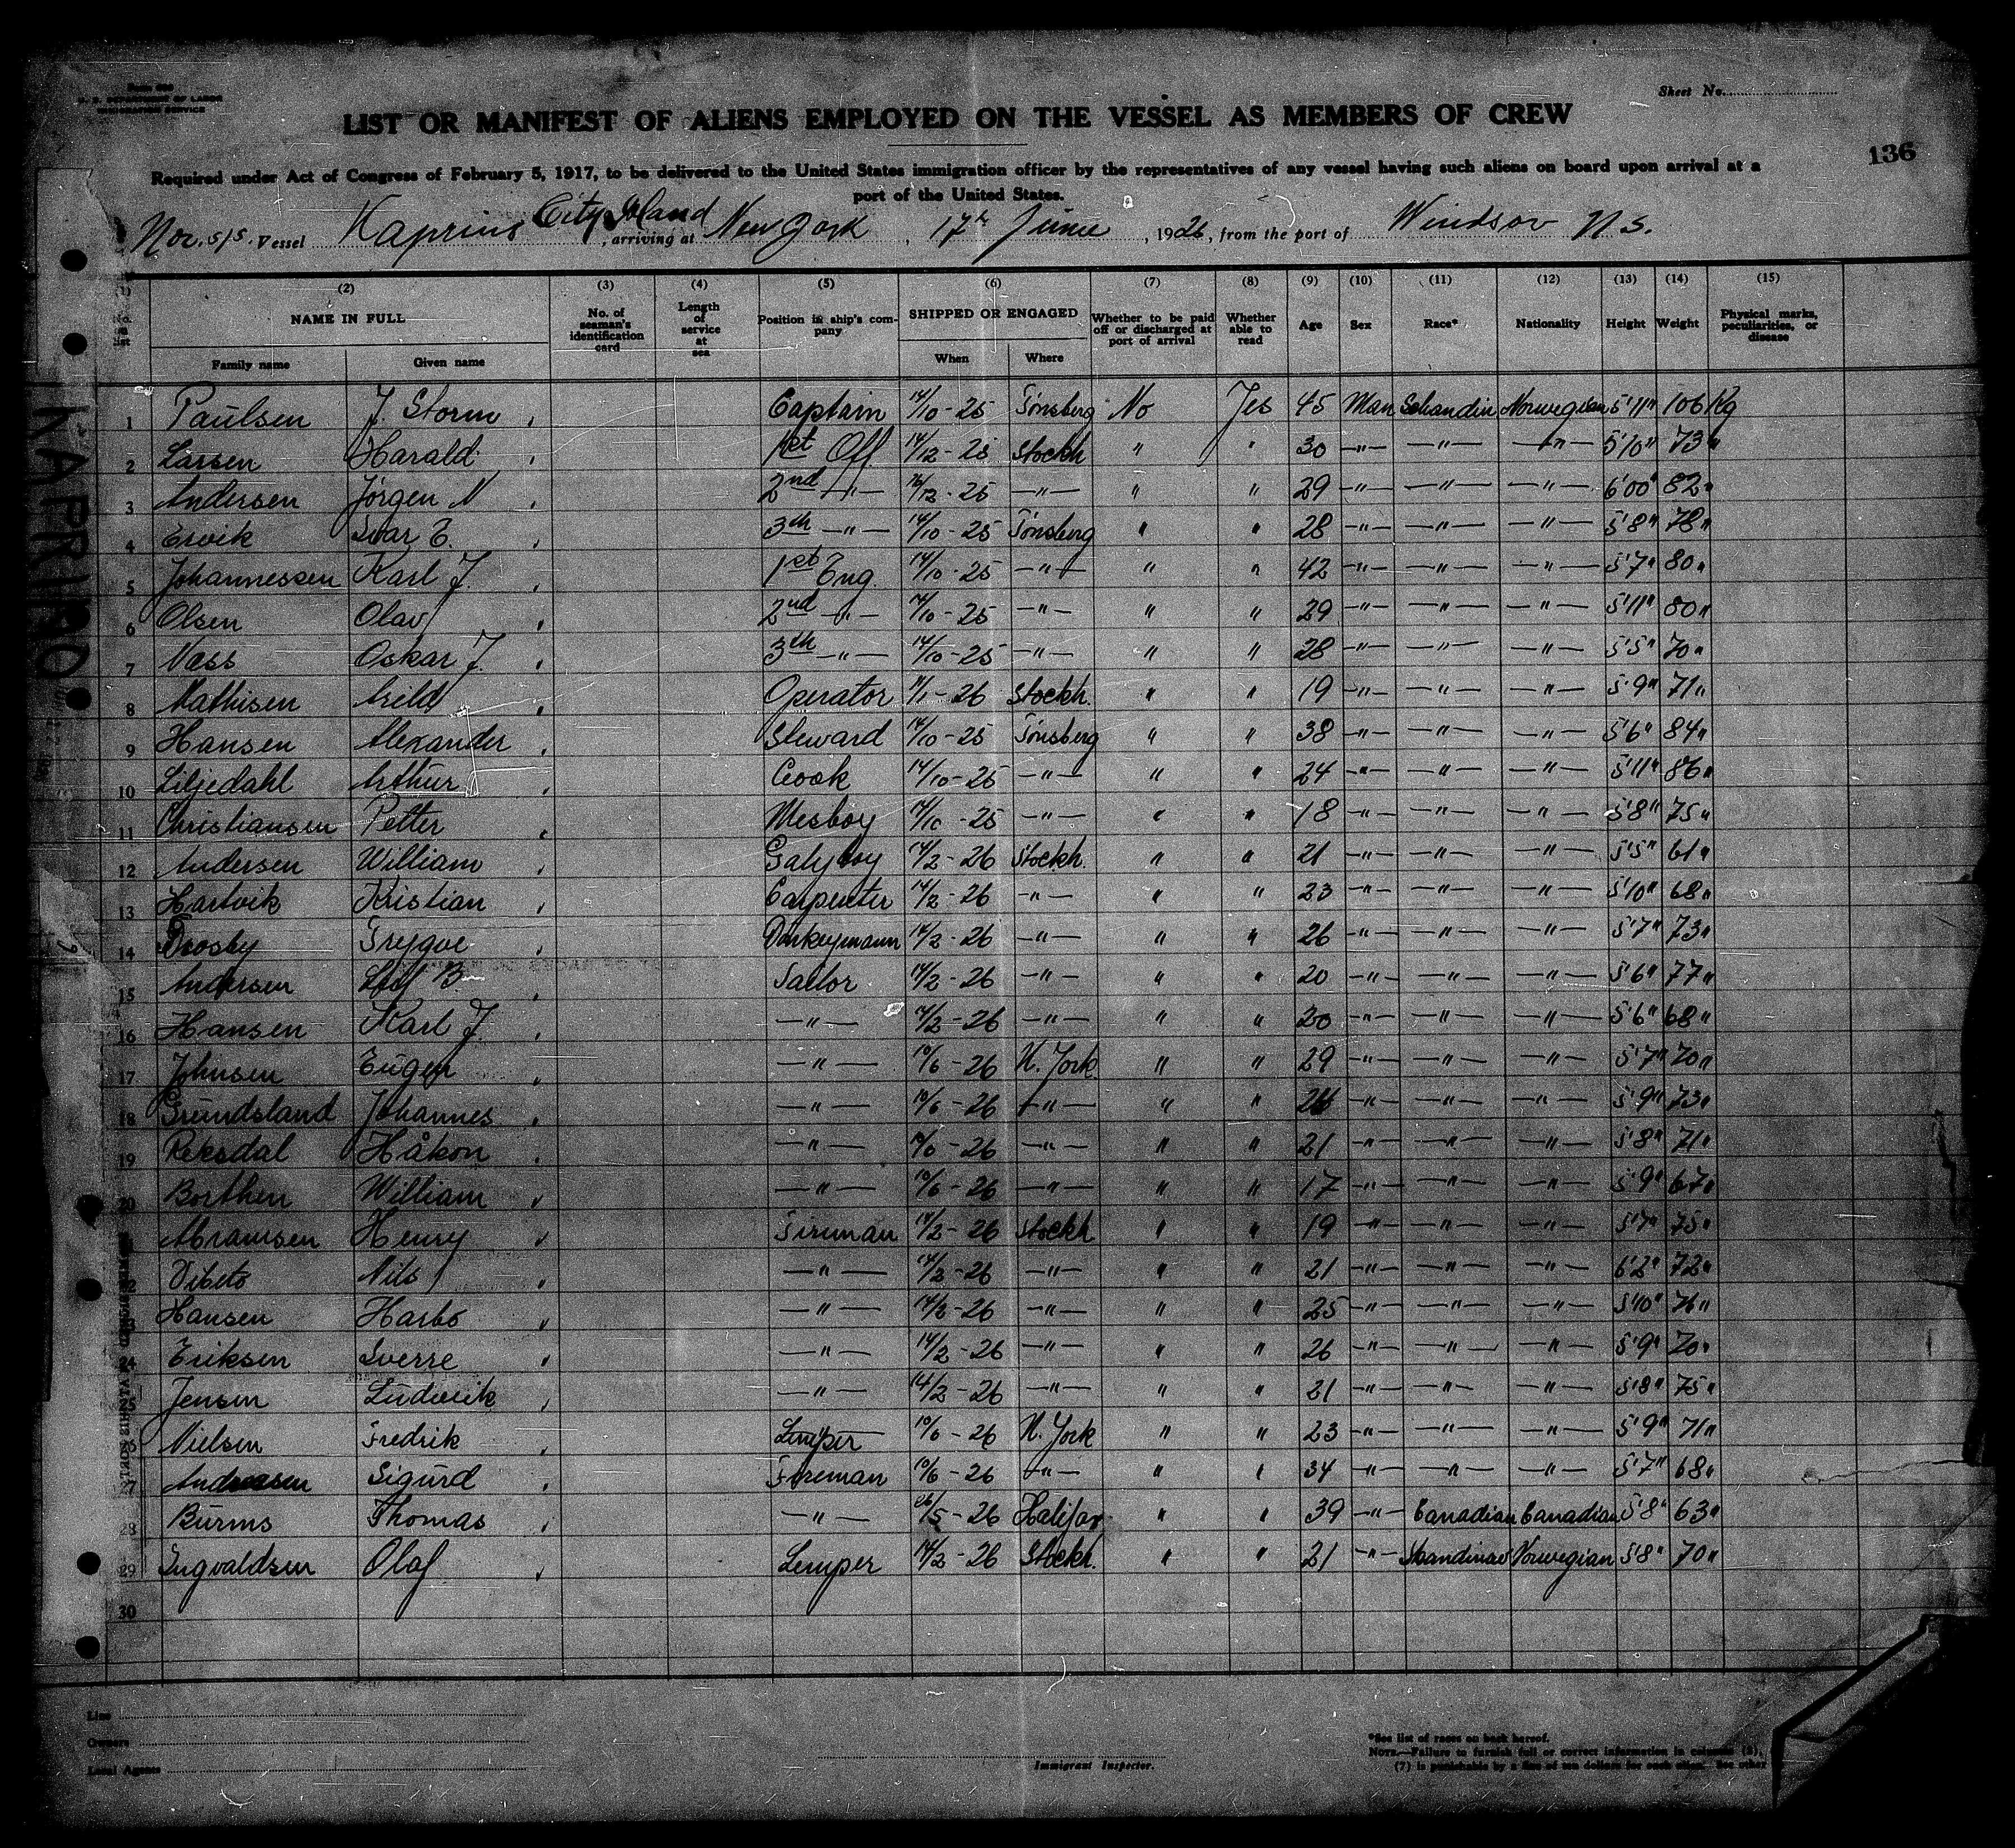 Form 680
U. S. DEPARTMENT OF LABOR
IMMIGRATION SERVICE
Sheet No.
LIST OR MANIFEST OF ALIENS EMPLOYED ON THE VESSEL AS MEMBERS OF CREW
136
Required under Act of Congress of February 5, 1917, to be delivered to the United States immigration officer by the representatives of any vessel having such aliens on board upon arrival at a
port of the United States.
City Island
Nor. s/s. Vessel Kaprino, arriving at New York, 17th June, 1926, from the port of Windsor N.S.
(2) (3) (4) (5) (6) (7) (8) (9) (10) (11) (12) (13) (14) (15)
No. on list NAME IN FULL No. of seaman's identification card Length of service at sea Position in ship's company SHIPPED OR ENGAGED Whether to be paid off or discharged at port of arrival Whether able to read Age Sex Race* Nationality Height Weight Physical marks, peculiarities, or disease
Family name Given name When Where
1 Paulsen J. Storm Captain 14/10-25 Tönsberg No Yes 45 Man Schandin Norwegian 5'11" 106 Kg
2 Larsen Harald 1st Off. 14/12-25 Stockh " " 30 -"- -"- -"- 5'10" 73"
3 Andersen Jörgen N 2nd -"- /12-25 -"- " " 29 -"- -"- -"- 6'00" 82"
4 Ervik Ivar E. 3th -"- 14/10-25 Tönsberg " " 28 -"- -"- -"- 5'8" 78"
5 Johannessen Karl J. 1st Eng. 14/10-25 -"- " " 42 -"- -"- -"- 5'7" 80"
6 Olsen Olav 2nd -"- 14/10-25 -"- " " 29 -"- -"- -"- 5'11" 80"
7 Næss Oskar J. 3th -"- 14/10-25 -"- " " 28 -"- -"- -"- 5'5" 70"
8 Mathisen Arild Operator /1-26 Stockh. " " 19 -"- -"- -"- 5'9" 71"
9 Hansen Alexander Steward 14/10-25 Tönsberg " " 38 -"- -"- -"- 5'6" 84"
10 Liljedahl Arthur Cook 14/10-25 -"- " " 24 -"- -"- -"- 5'11" 86"
11 Christiansen Petter Mesboy 14/10-25 -"- " " 18 -"- -"- -"- 5'8" 75"
12 Andersen William Galyboy 14/2-26 Stockh. " " 21 -"- -"- -"- 5'5" 61"
13 Hartvik Kristian Carpenter 14/2-26 -"- " " 23 -"- -"- -"- 5'10" 68"
14 Trygve Donkeymann 14/2-26 -"- " " 26 -"- -"- -"- 5'7" 73"
15 Andersen B Sailor 14/2-26 -"- " " 20 -"- -"- -"- 5'6" 77"
16 Hansen Karl J. -"- 14/2-26 -"- " " 30 -"- -"- -"- 5'6" 68"
17 Johnsen Eugen -"- 10/6-26 N. York " " 29 -"- -"- -"- 5'7" 70"
18 Grundsland Johannes -"- 10/6-26 -"- " " -"- -"- -"- 5'9" 73"
19 Reksdal Håkon -"- 10/6-26 -"- " " 21 -"- -"- -"- 5'8" 71"
20 Borthen William -"- 10/6-26 -"- " " 17 -"- -"- -"- 5'9" 67"
Abramsen Henry Fireman 14/2-26 Stockh " " 19 -"- -"- -"- 5'7" 75"
2 Vibeto Nils -"- 14/2-26 -"- " " 21 -"- -"- -"- 6'2" 72"
3 Hansen Harbo -"- 14/2-26 -"- " " 25 -"- -"- -"- 5'10" 76"
24 Eriksen Sverre -"- 14/2-26 -"- " " 26 -"- -"- -"- 5'9" 70"
25 Jensen Ludevik -"- 14/2-26 -"- " " 21 -"- -"- -"- 5'8" 75"
Nielsen Fredrik Lemper 10/6-26 N. York " " 23 -"- -"- -"- 5'9" 71"
27 Andreasen Sigurd Fireman 10/6-26 -"- " " 34 -"- -"- -"- 5'7" 68"
28 Burms Thomas -"- 26/5-26 Halifax " " 39 -"- Canadian Canadian 5'8" 63"
29 Ingvaldsen Olaf Lemper 14/2-26 Stockh. " " 21 -"- Skandinav Norwegian 5'8" 70"
30
KAPRINO
Line
Owners
Local Agents
Immigrant Inspector.
*See list of races on back hereof.
NOTE.—Failure to furnish full or correct information in columns (2),
(7) is punishable by a fine of ten dollars for each alien. See other